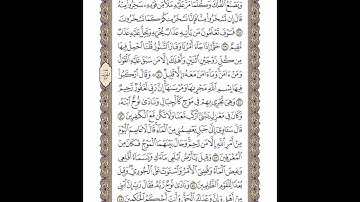 وَيَصْنَعُ ٱلْفُلْكَ وَكُلَّمَا مَرَّ عَلَيْهِ مَلَأٌ مِّن قَوْمِهِۦ سَخِرُوا۟ مِنْهُ
قَالَ إِن تَسْخَرُوا۟ مِنَّا فَإِنَّا نَسْخَرُ مِنكُمْ كَمَا تَسْخَرُونَ
٣٨ فَسَوْفَ تَعْلَمُونَ مَن يَأْتِيهِ عَذَابٌ يُخْزِيهِ وَيَحِلُّ عَلَيْهِ عَذَابٌ
مُّقِيمٌ ٣٩ حَتَّىٰٓ إِذَا جَآءَ أَمْرُنَا وَفَارَ ٱلتَّنُّورُ قُلْنَا ٱحْمِلْ فِيهَا
مِن كُلٍّ زَوْجَيْنِ ٱثْنَيْنِ وَأَهْلَكَ إِلَّا مَن سَبَقَ عَلَيْهِ ٱلْقَوْلُ
وَمَنْ ءَامَنَ وَمَآ ءَامَنَ مَعَهُۥٓ إِلَّا قَلِيلٌ ٤٠ ۞ وَقَالَ ٱرْكَبُوا۟ فِيهَا
بِسْمِ ٱللَّهِ مَجْر۪ىٰهَا وَمُرْسَىٰهَآ إِنَّ رَبِّى لَغَفُورٌ رَّحِيمٌ
٤١ وَهِىَ تَجْرِى بِهِمْ فِى مَوْجٍ كَٱلْجِبَالِ وَنَادَىٰ نُوحٌ ٱبْنَهُۥ
وَكَانَ فِى مَعْزِلٍ يَٰبُنَىَّ ٱرْكَب مَّعَنَا وَلَا تَكُن مَّعَ ٱلْكَٰفِرِينَ ٤٢
قَالَ سَـَٔاوِىٓ إِلَىٰ جَبَلٍ يَعْصِمُنِى مِنَ ٱلْمَآءِ قَالَ لَا عَاصِمَ ٱلْيَوْمَ
مِنْ أَمْرِ ٱللَّهِ إِلَّا مَن رَّحِمَ وَحَالَ بَيْنَهُمَا ٱلْمَوْجُ فَكَانَ مِنَ
ٱلْمُغْرَقِينَ ٤٣ وَقِيلَ يَٰٓأَرْضُ ٱبْلَعِى مَآءَكِ وَيَٰسَمَآءُ أَقْلِعِى
وَغِيضَ ٱلْمَآءُ وَقُضِىَ ٱلْأَمْرُ وَٱسْتَوَتْ عَلَى ٱلْجُودِىِّ وَقِيلَ
بُعْدًا لِّلْقَوْمِ ٱلظَّٰلِمِينَ ٤٤ وَنَادَىٰ نُوحٌ رَّبَّهُۥ فَقَالَ رَبِّ إِنَّ ٱبْنِى
مِنْ أَهْلِى وَإِنَّ وَعْدَكَ ٱلْحَقُّ وَأَنتَ أَحْكَمُ ٱلْحَٰكِمِينَ ٤٥